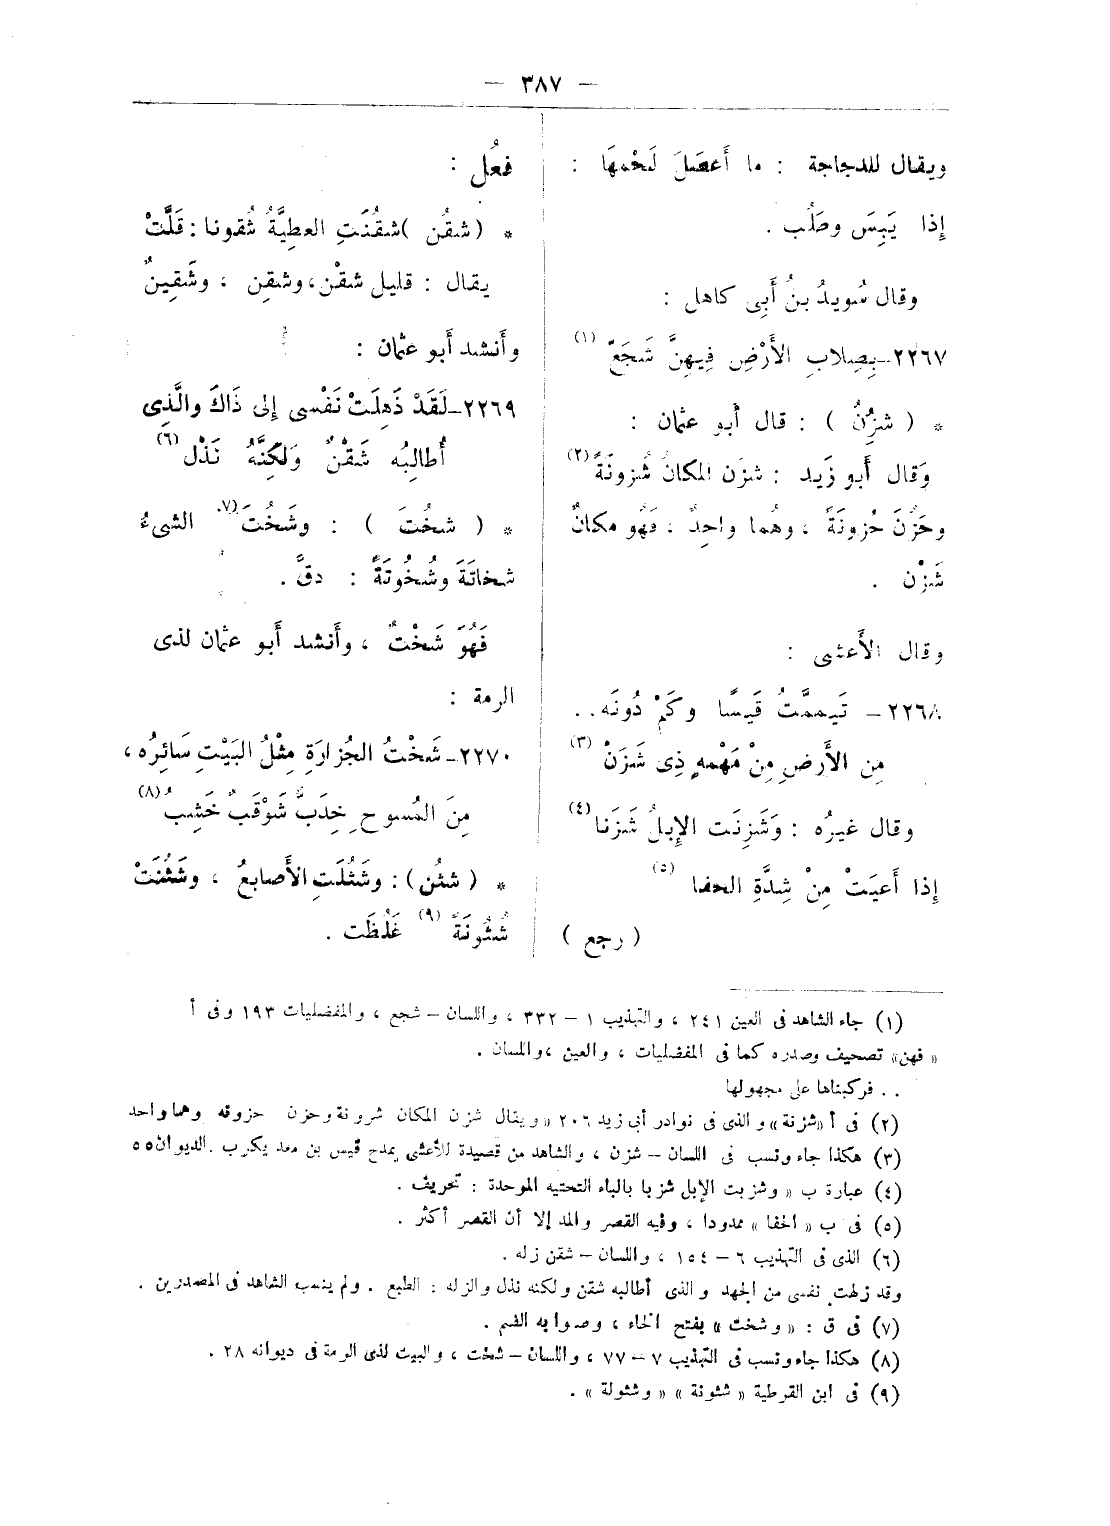 — ٣٨٧ —
ويقال للدجاجة : ما أَعضَلَ لَحْمهَا :
إِذا يَبِسَ وصَلُب .
وقال سُويدُ بنُ أَبى كاهل :
٢٢٦٧ــ بِصِلابِ الأَرْضِ فِيهِنَّ شَجَعْ (١)
* ( شزُنَ ) : قال أَبو عثمان :
وَقال أَبو زَيد : شزُن المكانُ شُزونَةً (٢)
وحَزُنَ حُزونَةً ، وهُما واحِدٌ ، فَهُو مكانٌ
شَزْن .
وقال الأَعشى :
٢٢٦٨ ــ تَيممَّتُ قَيسًا وكَمْ دُونَه . .
مِن الأَرضِ مِنْ مَهْمهٍ ذِى شَزَنْ (٣)
وقال غيرُه : وَشَزِنَت الإِبلُ شَزَنا (٤)
إِذا أَعيَتْ مِنْ شِدَّةِ الحفا (٥)
( رجع )
فعُل :
* ( شقُن ) شقُنَتِ العطِيَّةُ شُقونا : قَلَّتْ
يقال : قليل شقْن ، وشقِن ، وشَقِينٌ
وأَنشد أَبو عثمان :
٢٢٦٩ــ لَقَدْ ذَهِلَتْ نَفْسى إِلى ذَاكَ والَّذِى
أُطالِبُه شَقْنٌ وَلكِنَّهُ نَذْل (٦)
* ( شخُتَ ) : وشَخُتَ (٧) الشىءُ
شخاتَةً وشُخُوتَةً : دقَّ .
فَهُوَ شَخْتٌ ، وأَنشد أَبو عثمان لذى
الرمة :
٢٢٧٠ــ شَخْتُ الجُزارَةِ مِثْلُ البَيْتِ سَائِرُه ،
مِنَ المُسوح خِدَبٌّ شَوْقَبٌ خَشِبُ (٨)
* ( شثُن ) : وشَثُلَتِ الأَصابعُ ، وشَثُنَتْ
شُثُونَةً (٩) غَلُظَت .
(١) جاء الشاهد فى العين ٢٤١ ، والتهذيب ١ – ٣٣٢ ، واللسان – شجع ، والمفضليات ١٩٣ وفى أ
« فهن » تصحيف وصدره كما فى المفضليات ، والعين ، واللسان .
. . فركبناها على مجهولها
(٢) فى أ « شزنة » والذى فى نوادر أبى زيد ٢٠٦ « ويقال شزن المكان شزونة وحزن حزونه وهما واحد
(٣) هكذا جاء ونسب فى اللسان – شزن ، والشاهد من قصيدة للأعشى يمدح قيس بن معد يكرب . الديوان ٥٥
(٤) عبارة ب « وشزبت الإبل شزبا بالباء التحتيه الموحدة : تحريف .
(٥) فى ب « الحفا » ممدودا ، وفيه القصر والمد إلا أن القصر أكثر .
(٦) الذى فى التهذيب ٦ – ١٥٤ ، واللسان – شقن زله .
وقد زلهت نفسى من الجهد والذى أطالبه شقن ولكنه نذل والزله : الطبع . ولم ينسب الشاهد فى المصدرين .
(٧) فى ق : « وشخت » بفتح الخاء ، وصوابه الضم .
(٨) هكذا جاء ونسب فى التهذيب ٧ – ٧٧ ، واللسان – شخت ، والبيت لذى الرمة فى ديوانه ٢٨ .
(٩) فى ابن القوطية « شثونة » « وشثولة » .